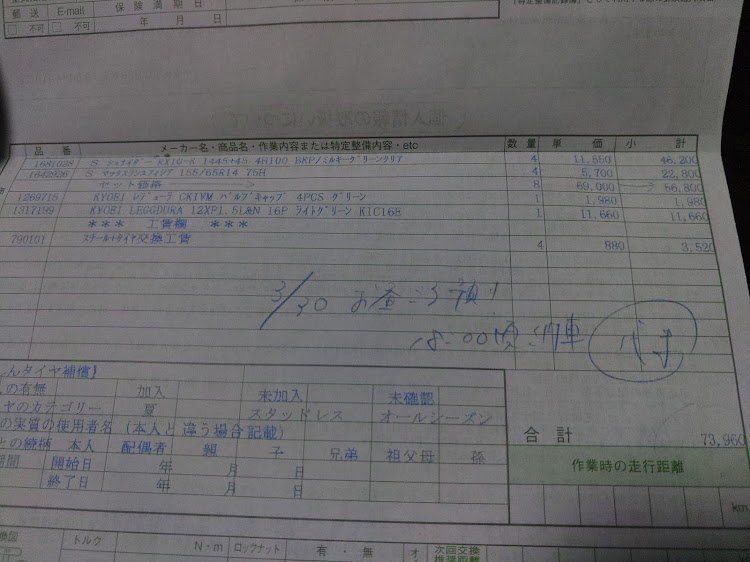 郵送 E-mail 保険満期日
不可 不可 年 月 日
品番 メーカー名・商品名・作業内容または特定整備内容・etc 数量 単価 小計
1681028 S シュナイダー RX10-K 1445+45 4H100 BKP/ミルキーグリーンクリア 4 11,550 46,200
S マックスランスフィジア 155/65R14 75H 4 5,700 22,800
セット価格 > 8 69,000 56,800
1269715 KYOEI レデューラ CKIVM バルブキャップ 4PCS グリーン 1 1,980 1,980
1317199 KYOEI LEGGDURA 12XP1.5L&N 16P ライトグリーン KIC16E 1 11,660 11,660
*** 工賃欄 ***
790101 スチール+タイヤ交換工賃 4 880 3,520
3/30 お渡し
18:00頃 納車
んタイヤ補償】
の有無 加入 未加入 未確認
ヤのカテゴリー 夏 スタッドレス オールシーズン
の実質の使用者名 (本人と違う場合記載)
との続柄 本人 配偶者 親 子 兄弟 祖父母 孫
期間 開始日 年 月 日
終了日 年 月 日
合計 73,960
作業時の走行距離
km
トルク N・m ロックナット 有・無 次回交換